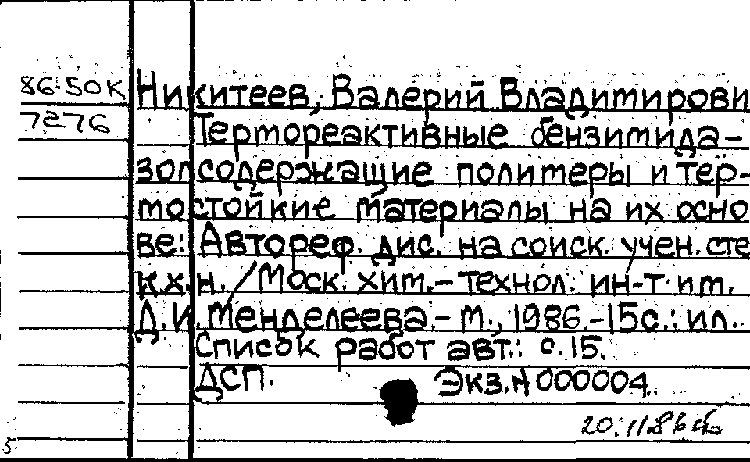 86-50К Никитеев, Валерий Владимирови
7276 Термореактивные бензимида-
золсодержащие полимеры и тер-
мостойкие материалы на их осно
ве: Автореф. дис. на соиск. учен. сте
к.х.н. / Моск. хим.-технол. ин-т им.
Д.И. Менделеева.- М., 1986.-15с.: ил.
Список работ авт.: с.15.
ДСП. Экз.N 000004.
20.11.86
5